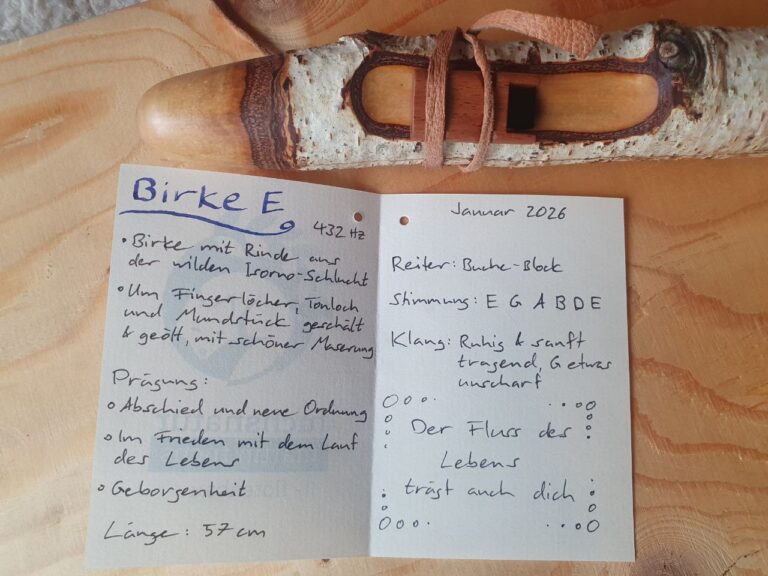 Birke E
432 Hz
• Birke mit Rinde aus
der wilden Isorno-Schlucht
• Um Fingerlöcher, Tonloch
und Mundstück geschält
& geölt, mit schöner Maserung
Prägung:
• Abschied und neue Ordnung
• Im Frieden mit dem Lauf
des Lebens
• Geborgenheit
Länge: 57 cm
Januar 2026
Reiter: Buche-Block
Stimmung: E G A B D E
Klang: Ruhig & sanft
tragend, G etwas
unscharf
Der Fluss des
Lebens
trägt auch dich